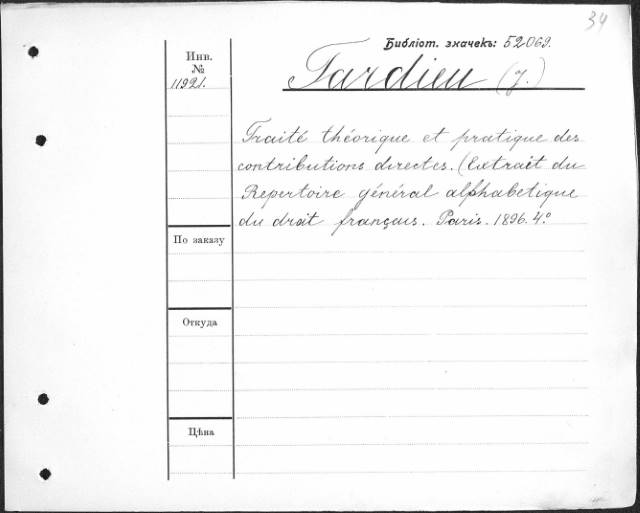 34
Библіот. значекъ: 52069.
Инв.
№
11921.
Tardieu (J.)
Traité théorique et pratique des
contributions directes. (Extrait du
Repertoire général alphabetique
du droit français. Paris. 1896. 4.°
По заказу
Откуда
Цѣна